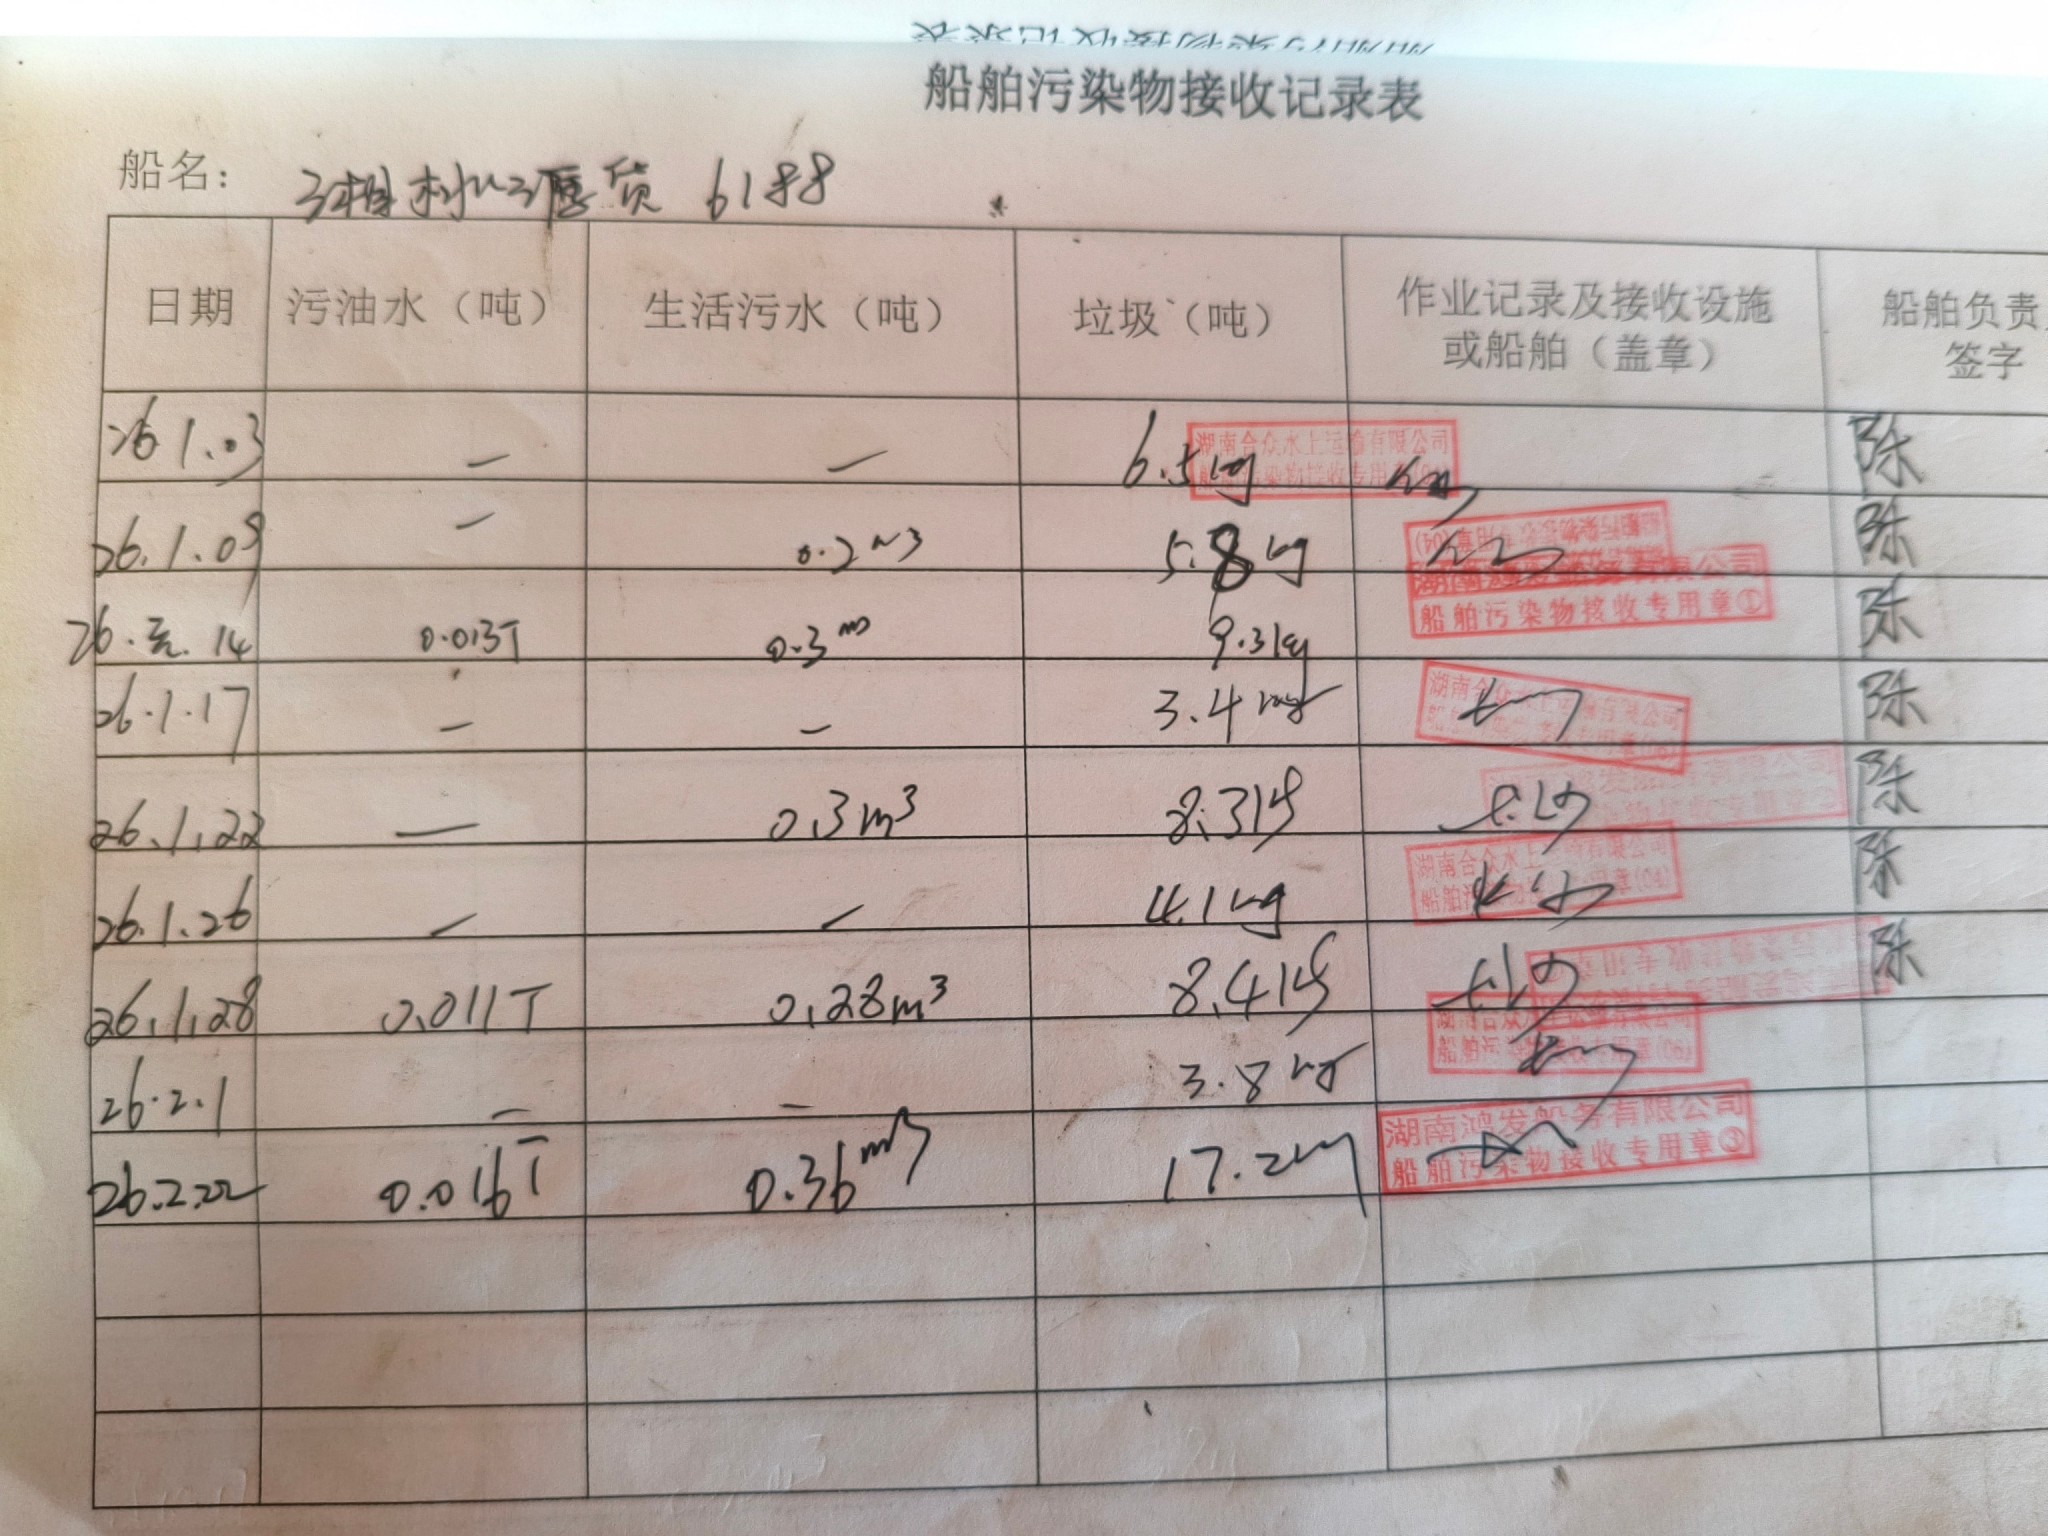 船舶污染物接收记录表
船名： 货 6188
日期 污油水（吨） 生活污水（吨） 垃圾（吨） 作业记录及接收设施或船舶（盖章） 船舶负责 签字
26.1.03 — — 6.5kg 湖南合众水上运输有限公司 船舶污染物接收专用章 陈
26.1.09 — 0.2m3 5.8kg 陈
船舶污染物接收专用章①
26.元.14 0.013T 0.3m 9.3kg 陈
26.1.17 — — 3.4kg 湖南合众水上运输有限公司 陈
26.1.22 — 0.3m³ 8.3kg 陈
26.1.26 — — 4.1kg 湖南合众水上运输有限公司 船舶污染物接收专用章(04) 陈
26.1.28 0.011T 0.28m³ 8.4kg 陈
26.2.1 — — 3.8kg 湖南合众水上运输有限公司 船舶污染物接收专用章(06)
26.2.22 0.016T 0.36m3 17.2kg 湖南鸿发船务有限公司 船舶污染物接收专用章③